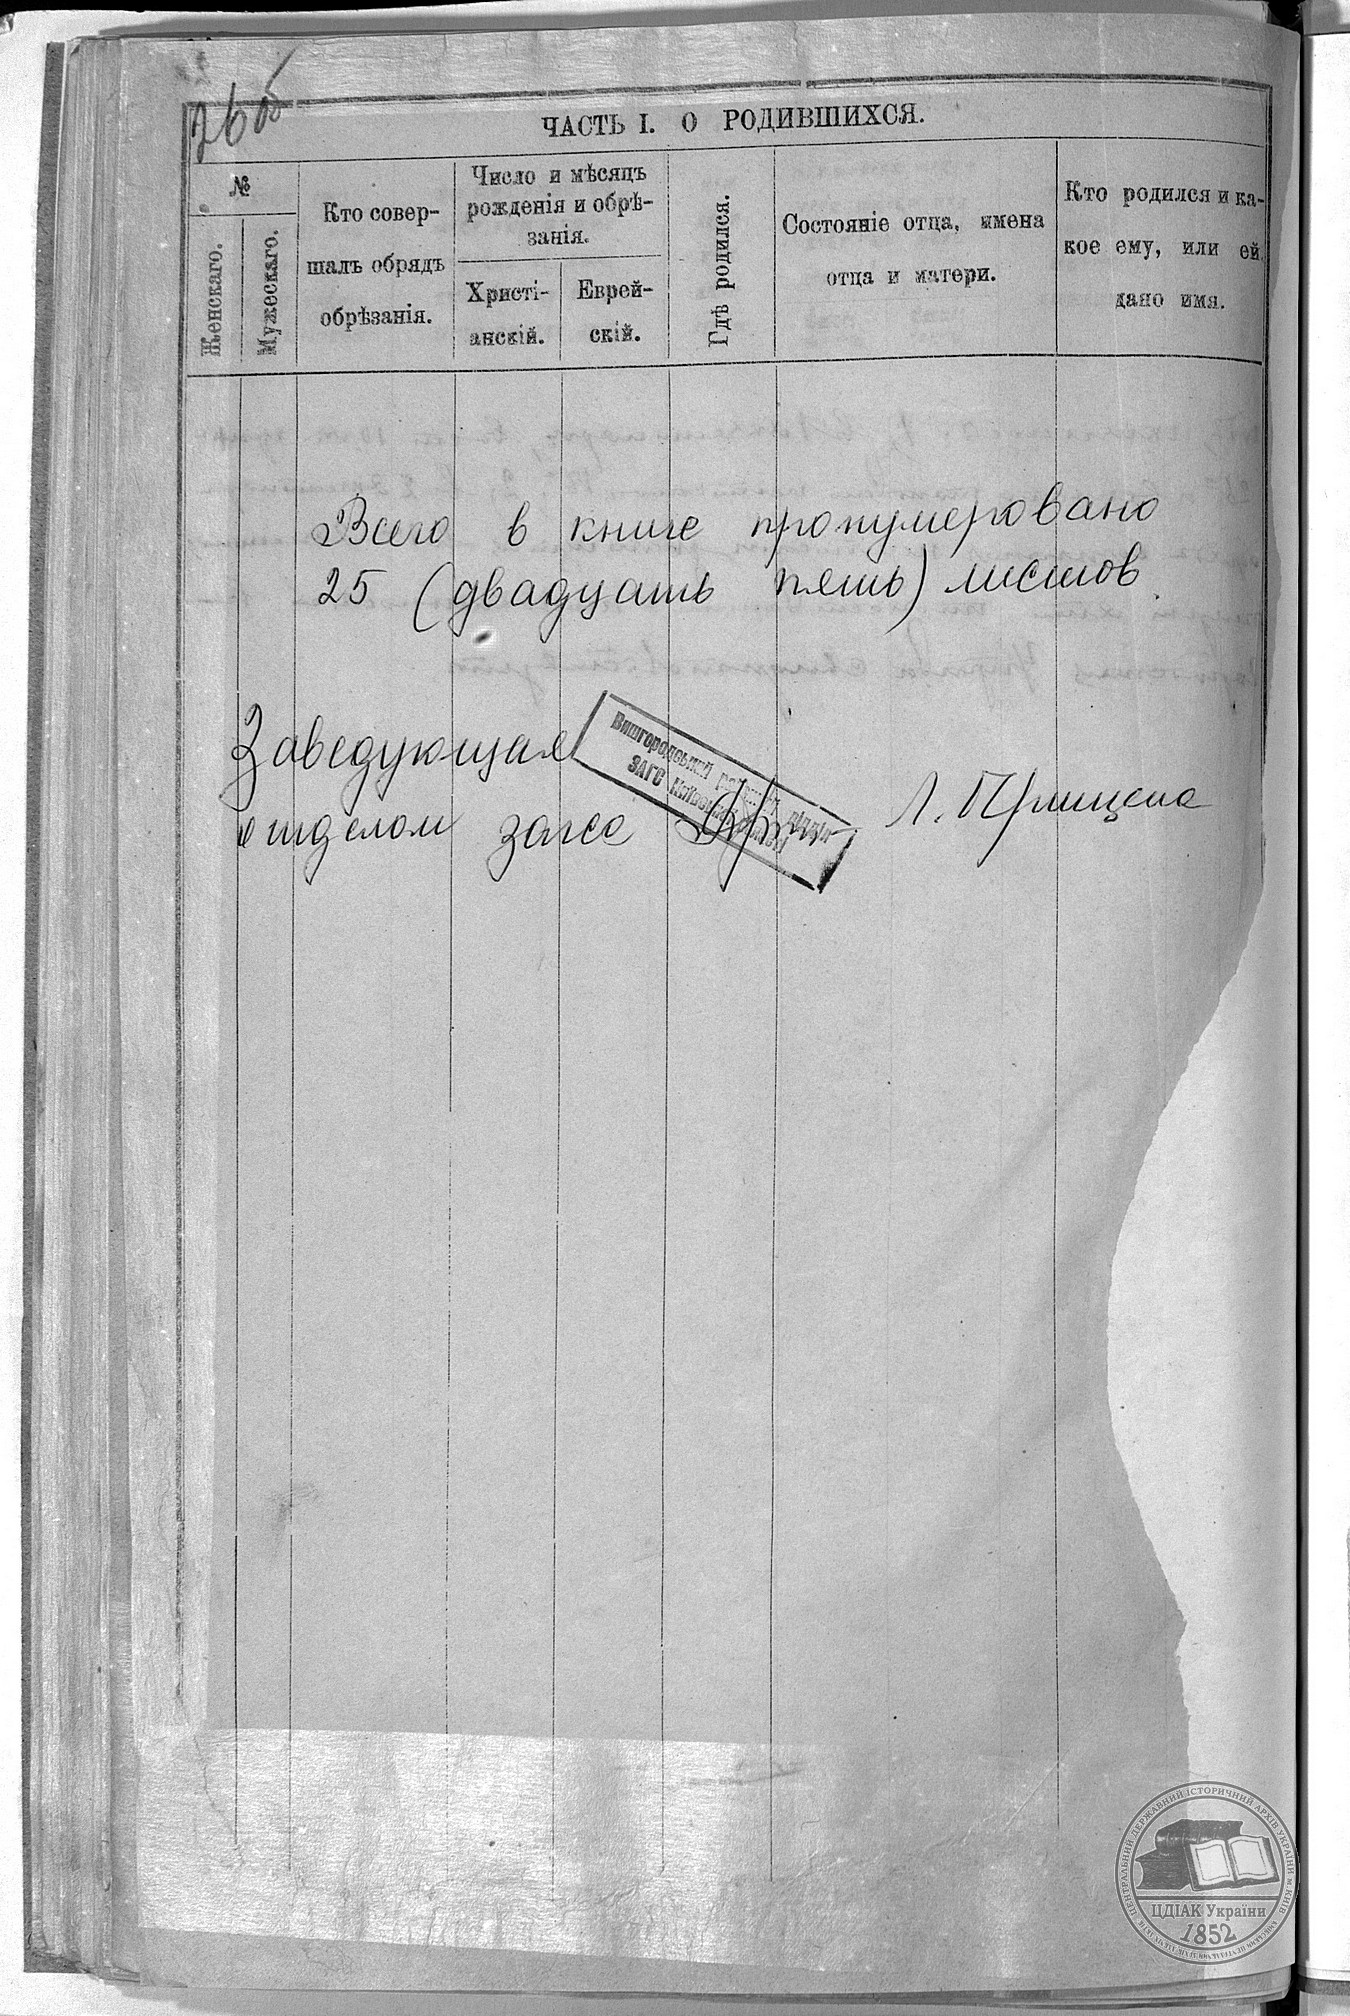 26 об
ЧАСТЬ I. О РОДИВШИХСЯ.
№
Женскаго.
Мужескаго.
Кто совер-
шалъ обрядъ
обрѣзанія.
Число и мѣсяцъ
рожденія и обрѣ-
занія.
Христі-
анскій.
Еврей-
скій.
Гдѣ родился.
Состояніе отца, имена
отца и матери.
Кто родился и ка-
кое ему, или ей
дано имя.
Всего в книге пронумеровано
25 (двадцать пять) листов.
Заведующая
отделом загса
Л.
Вишгородський районний відділ
ЗАГС Київської області
ЦЕНТРАЛЬНИЙ ДЕРЖАВНИЙ ІСТОРИЧНИЙ АРХІВ УКРАЇНИ м. КИЇВ
ЦДІАК України
1852